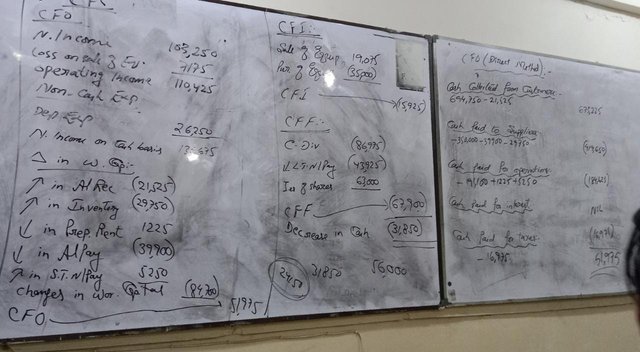 CFO
N. Income 103,250
Loss on sale of Eq. 7175
operating Income 110,425
Non-Cash Exp.
Dep. Exp 26,250
N. Income on Cash basis
Δ in W. Cap:-
↑ in A/Rec (21,525)
↑ in Inventory (29,750)
↓ in Prep. Rent 1225
↓ in A/Pay (39,900)
↑ in S.T. N/Pay 5250
changes in wor. Capital (84,700)
CFO 51,975
CFI:-
Sale of Equip 19,075
Pur. of Eq. (35,000)
CFI (15,925)
CFF:-
C-Div (86,975)
↓ L.T. N/Pay (43,925)
Iss of shares 63,000
CFF (67,900)
Decrease in Cash (31,850)
2450 31850 56,000
CFO (Direct Method):-
Cash Collected from Customers
694,750-21,525 673,225
Cash paid to suppliers
-350,000-39900-29750 (419,650)
Cash paid for operations
+1225+5250
Cash paid for interest
NIL
Cash paid for taxes
16,975
51,975